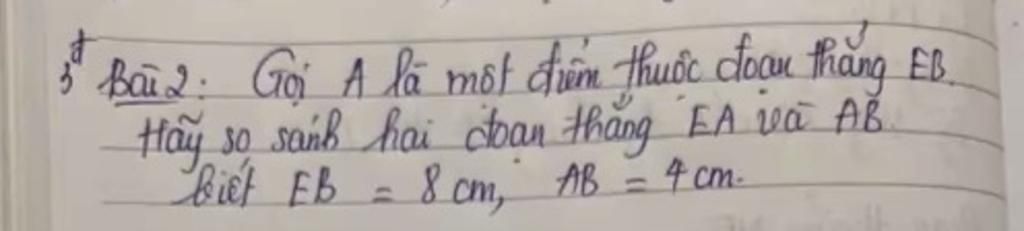 3đ Bài 2: Gọi A là một điểm thuộc đoạn thẳng EB.
Hãy so sánh hai đoạn thẳng EA và AB
biết EB = 8 cm, AB = 4 cm.